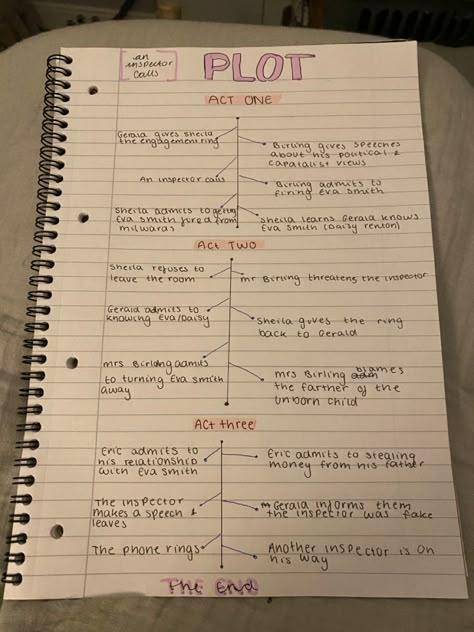 an
inspector
calls
PLOT
ACT ONE
Gerald gives sheila
the engagement ring
Birling gives speeches
about his political &
capatalist views
An inspector calls
Birling admits to
firing Eva smith
Sheila admits to getting
Eva smith fired from
milwards
Sheila learns Gerald knows
Eva Smith (Daisy renton)
Act Two
Sheila refuses to
leave the room
mr Birling threatens the inspector
Gerald admits to
knowing Eva/Daisy
Sheila gives the ring
back to Gerald
mrs Birling admits
to turning Eva smith
away
mrs Birling blames
the farther of the
unborn child
Act three
Eric admits to
his relationship
with Eva smith
Eric admits to stealing
money from his father
The inspector
makes a speech &
leaves
Gerald informs them
the inspector was fake
The phone rings
Another inspector is on
his way
The End